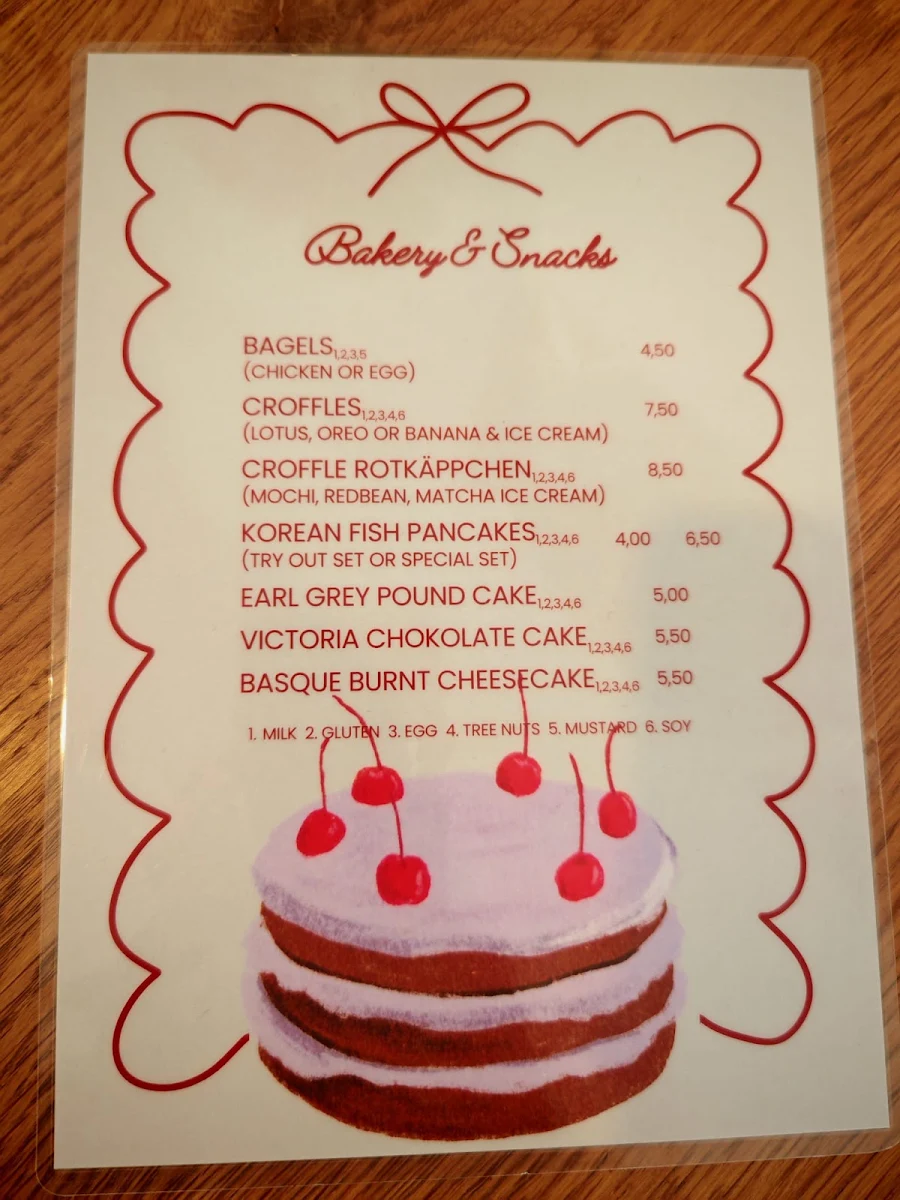 Bakery & Snacks
BAGELS1,2,3,5 4,50
(CHICKEN OR EGG)
CROFFLES1,2,3,4,6 7,50
(LOTUS, OREO OR BANANA & ICE CREAM)
CROFFLE ROTKÄPPCHEN1,2,3,4,6 8,50
(MOCHI, REDBEAN, MATCHA ICE CREAM)
KOREAN FISH PANCAKES1,2,3,4,6 4,00 6,50
(TRY OUT SET OR SPECIAL SET)
EARL GREY POUND CAKE1,2,3,4,6 5,00
VICTORIA CHOKOLATE CAKE1,2,3,4,6 5,50
BASQUE BURNT CHEESECAKE1,2,3,4,6 5,50
1. MILK 2. GLUTEN 3. EGG 4. TREE NUTS 5. MUSTARD 6. SOY